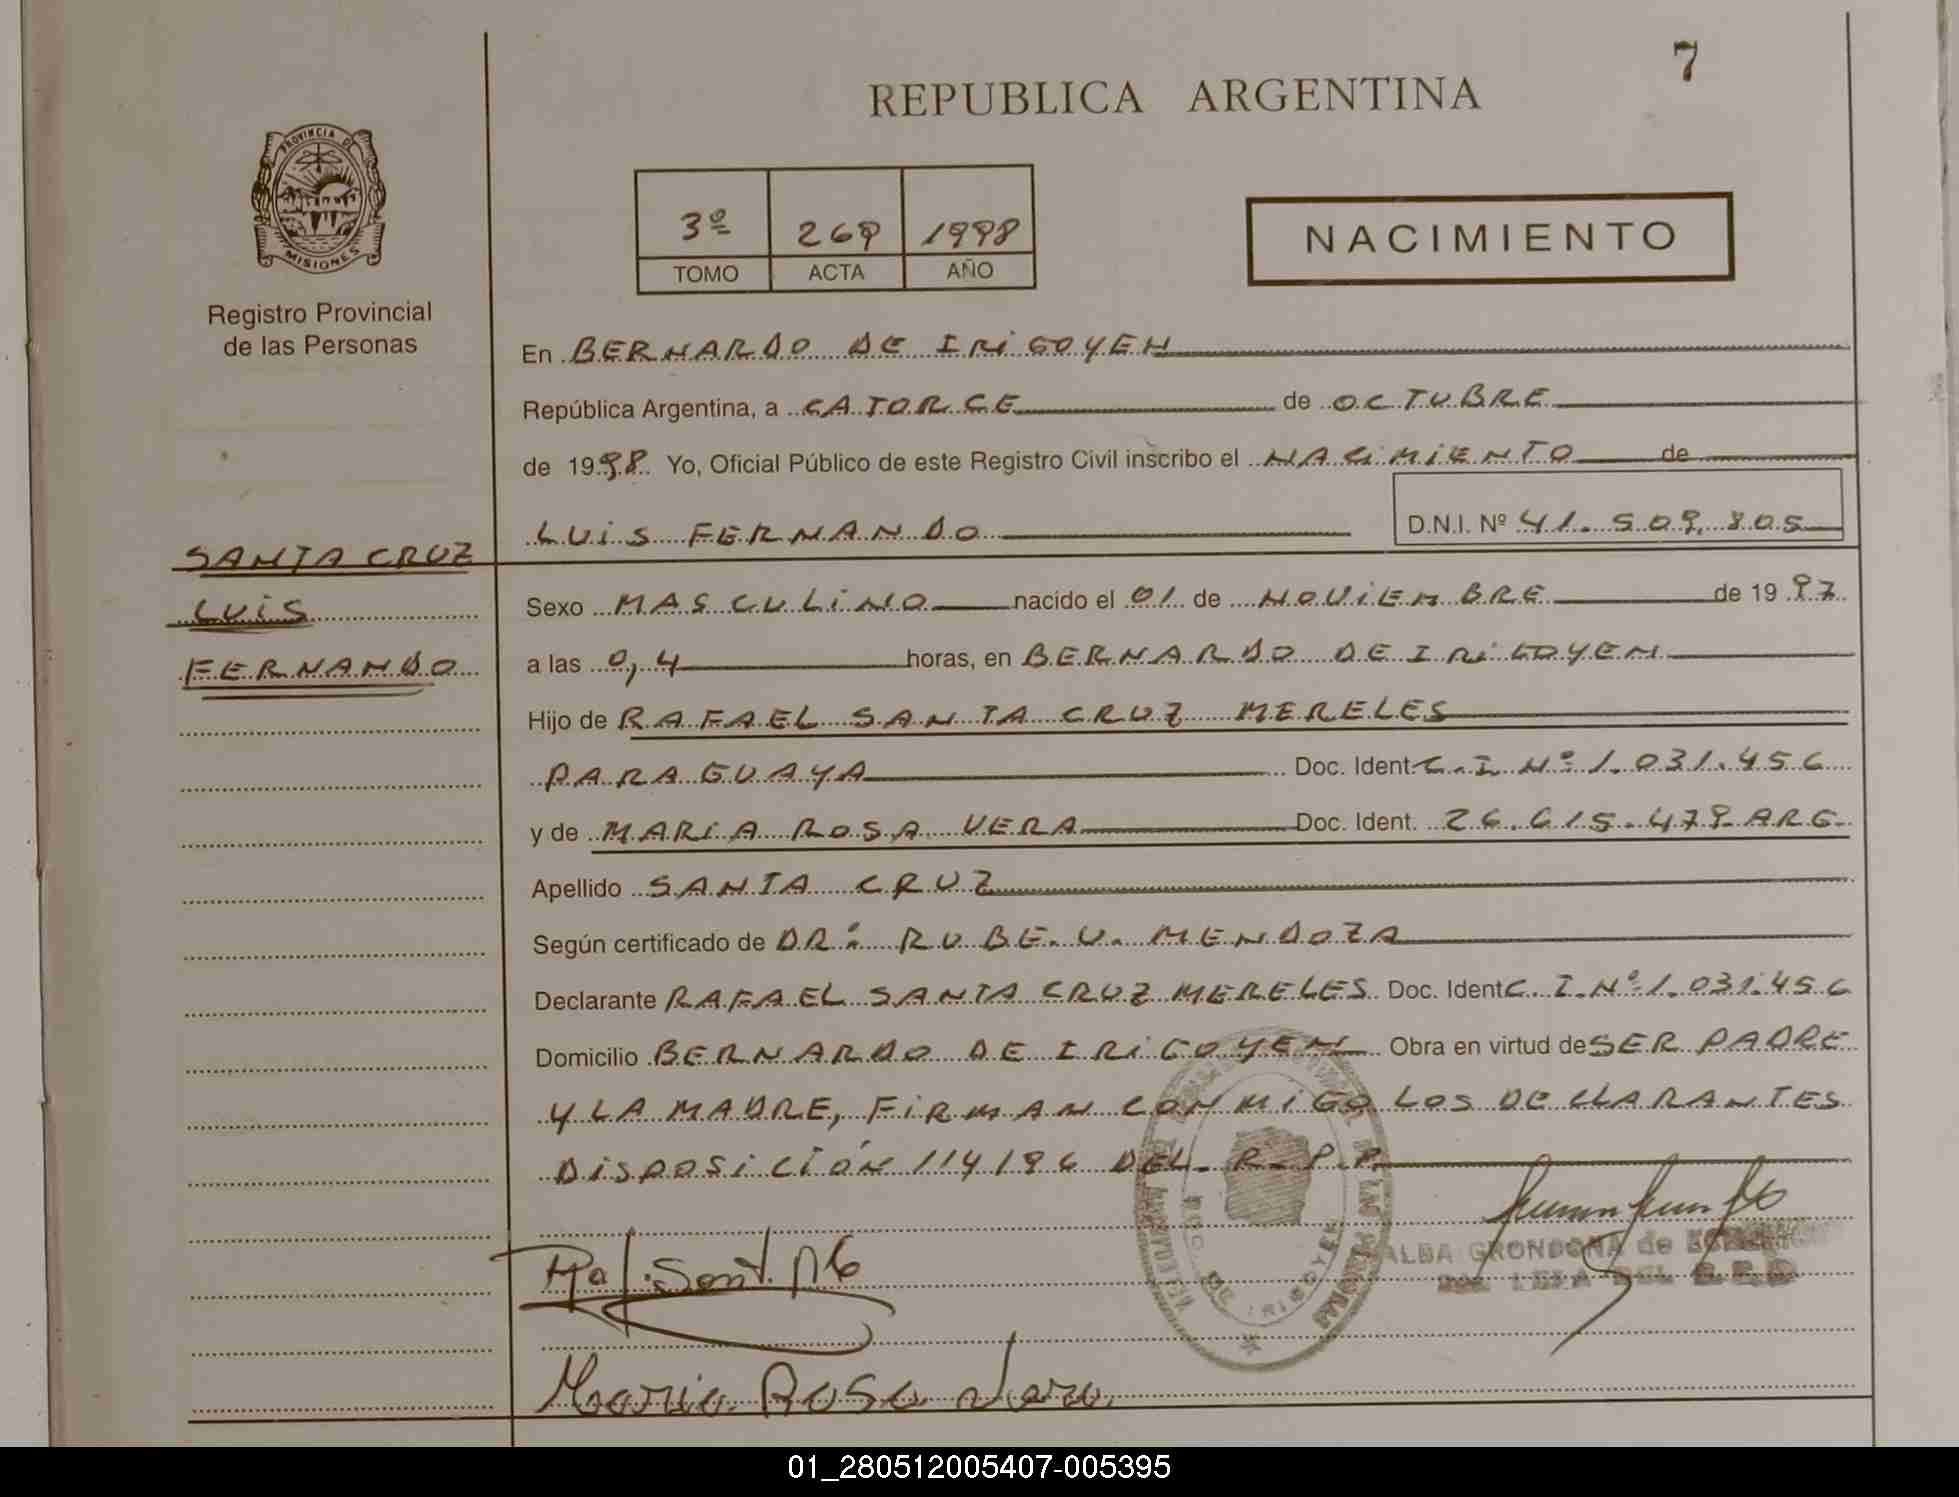 7
REPUBLICA ARGENTINA
PROVINCIA DE
MISIONES
Registro Provincial
de las Personas
3º 269 1998
TOMO ACTA AÑO
NACIMIENTO
En BERNARDO DE IRIGOYEN
República Argentina, a CATORCE de OCTUBRE
de 1998 Yo, Oficial Público de este Registro Civil inscribo el NACIMIENTO de
LUIS FERNANDO D.N.I. Nº 41.509.805
SANTA CRUZ
LUIS
FERNANDO
Sexo MASCULINO nacido el 01 de NOVIEMBRE de 1997
a las 0,4 horas, en BERNARDO DE IRIGOYEN
Hijo de RAFAEL SANTA CRUZ MERELES
PARAGUAYA Doc. Ident. C.I. Nº 1.031.456
y de MARIA ROSA VERA Doc. Ident. 26.615.479 ARG.
Apellido SANTA CRUZ
Según certificado de DR: RUBE.U. MENDOZA
Declarante RAFAEL SANTA CRUZ MERELES Doc. Ident C.I.Nº 1.031.456
Domicilio BERNARDO DE IRIGOYEN Obra en virtud de SER PADRE
Y LA MADRE, FIRMAN CONMIGO LOS DECLARANTES
DISPOSICIÓN 114/96 DEL R.P.P.
ALBA GRONDONA de
DEL
DE IRIGOYEN
Maria Rosa Vera
01_280512005407-005395